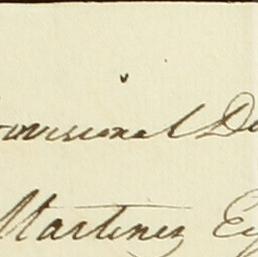 ovisional De
Martinez Es